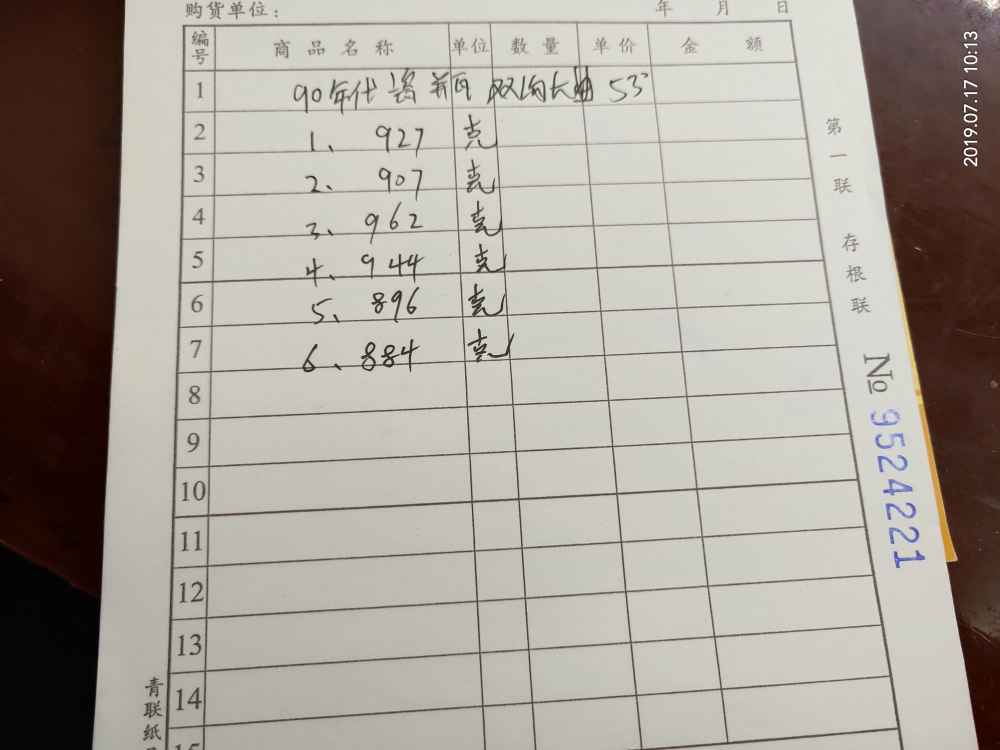 购货单位： 年 月 日
编号 商品名称 单位 数量 单价 金额
1 90年代酱瓶双沟大曲 53°
2 1、 927 克
3 2、 907 克
4 3、 962 克
5 4、 944 克
6 5、 896 克
7 6、 884 克
8
9
10
11
12
13
14
15
第一联 存根联
№ 9524221
青联纸
2019.07.17 10:13